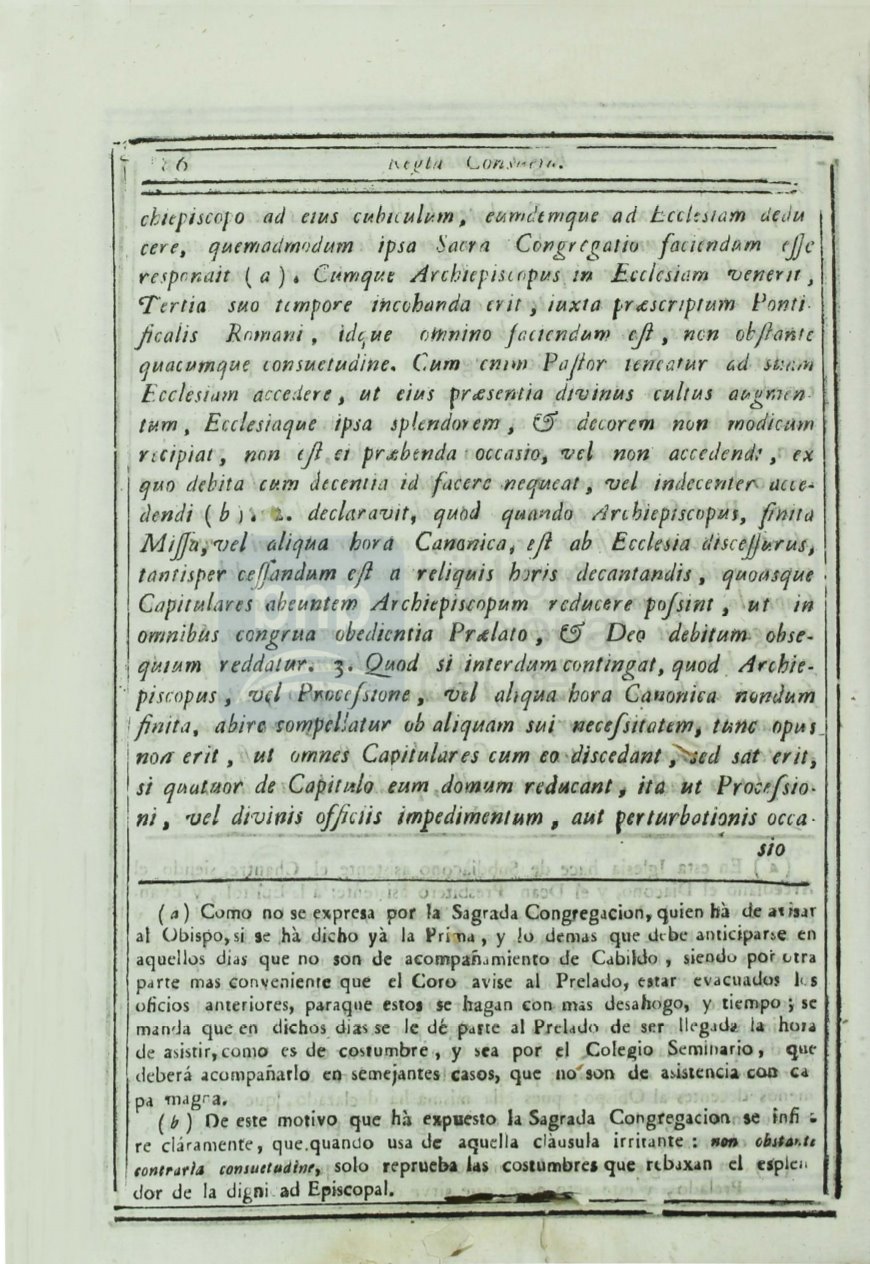 6 Regla Consueta.
chiepiscopo ad eius cubiculum, eumdemque ad Ecclesiam dedu
cere, quemadmodum ipsa Sacra Congregatio faciendum eſſe
respondit (a). Cumque Archiepiscopus in Ecclesiam venerit,
Tertia suo tempore incohanda erit, iuxta præscriptum Ponti-
ficalis Romani, idque omnino faciendum eſt, non obſtante
quacumque consuetudine. Cum enim Paſtor teneatur ad suam
Ecclesiam accedere, ut eius præsentia divinus cultus augmen-
tum, Ecclesiaque ipsa splendorem, & decorem non modicum
recipiat, non eſt ei præbenda occasio, vel non accedendi, ex
quo debita cum decentia id facere nequeat, vel indecenter acce-
dendi (b). 2. declaravit, quod quando Archiepiscopus, finita
Miſſa, vel aliqua hora Canonica, eſt ab Ecclesia disceſſurus,
tantisper ceſſandum eſt a reliquis horis decantandis, quousque
Capitulares abeuntem Archiepiscopum reducere poſsint, ut in
omnibus congrua obedientia Prælato, & Deo debitum obse-
quium reddatur. 3. Quod si interdum contingat, quod Archie-
piscopus, vel Proceſsione, vel aliqua hora Canonica nondum
finita, abire compellatur ob aliquam sui neceſsitatem, tunc opus
non erit, ut omnes Capitulares cum eo discedant, sed sat erit,
si quatuor de Capitulo eum domum reducant, ita ut Proceſsio-
ni, vel divinis officiis impedimentum, aut perturbationis occa-
sio
(a) Como no se expresa por la Sagrada Congregacion, quien hà de avisar
al Obispo, si se hà dicho yà la Prima, y lo demas que debe anticiparse en
aquellos dias que no son de acompañamiento de Cabildo, siendo por otra
parte mas conveniente que el Coro avise al Prelado, estar evacuados los
oficios anteriores, paraque estos se hagan con mas desahogo, y tiempo; se
manda que en dichos dias se le dé parte al Prelado de ser llegada la hora
de asistir, como es de costumbre, y sea por el Colegio Seminario, que
deberá acompañarlo en semejantes casos, que no son de asistencia con ca
pa magna.
(b) De este motivo que hà expuesto la Sagrada Congregacion se infie
re cláramente, que quando usa de aquella clàusula irritante: non obstante
contraria consuetudine, solo reprueba las costumbres que rebaxan el esplen
dor de la digni ad Episcopal.